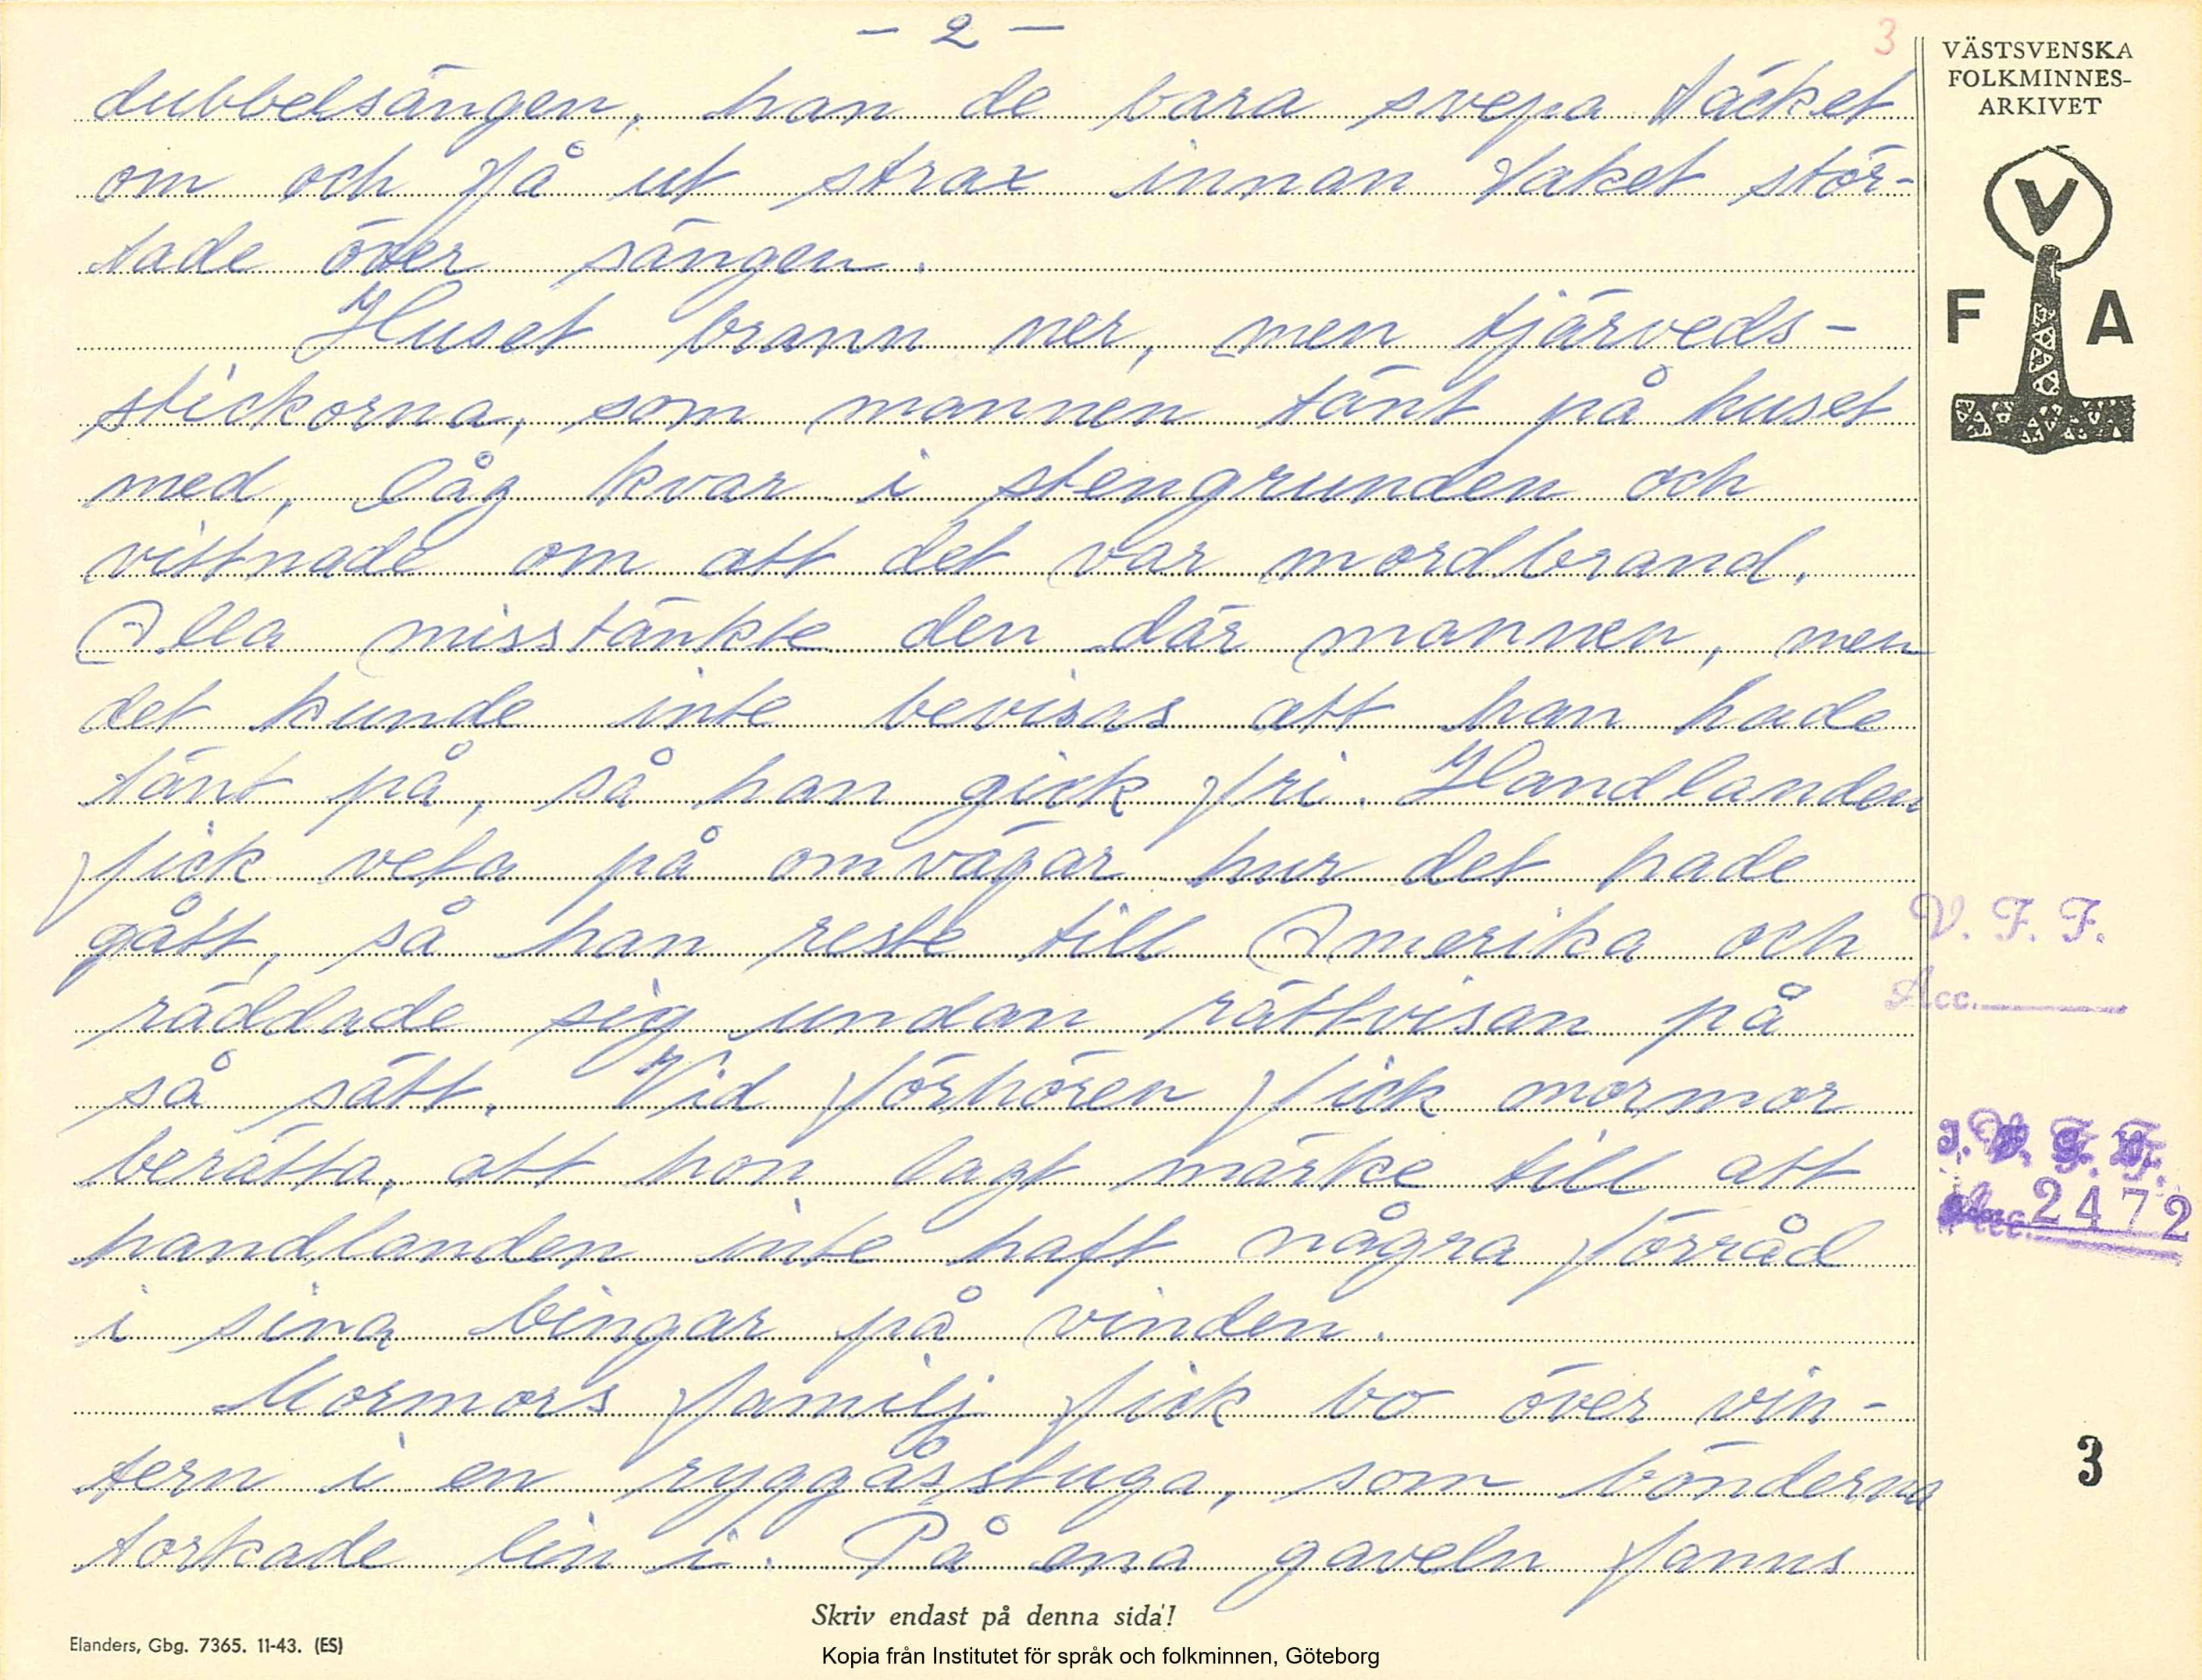 - 2 -
3
dubbelsängen, han de bara svepa täcket
om och få ut strax innan taket stör-
tade över sängen.
Huset brann ner, men tjärveds-
stickorna, som mannen tänt på huset
med, låg kvar i stengrunden och
vittnade om att det var mordbrand.
Alla misstänkte den där mannen, men
det kunde inte bevisas att han hade
tänt på, så han gick fri. Handlanden
fick veta på omvägar hur det hade
gått, så han reste till Amerika och
räddade sig undan rättvisan på
så sätt. Vid förhören fick mormor
berätta, att hon lagt märke till att
handlanden inte haft några förråd
i sina bingar på vinden.
Mormors familj fick bo över vin-
tern i en ryggåsstuga, som bönderna
torkade lin i. På ena gaveln fanns
VÄSTSVENSKA
FOLKMINNES-
ARKIVET
V
F A
V. F. F.
Acc.
Acc. 2472
3
Skriv endast på denna sida!
Elanders, Gbg. 7365. 11-43. (ES)
Kopia från Institutet för språk och folkminnen, Göteborg